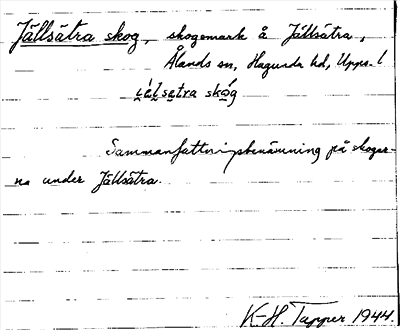 Jällsätra skog, skogsmark å Jällsätra,
Ålands sn, Hagunda hd, Upps. l
i̯élsetra skóg
Sammanfattningsbenämning på skogar-
na under Jällsätra.
K-H. Tapper 1944.